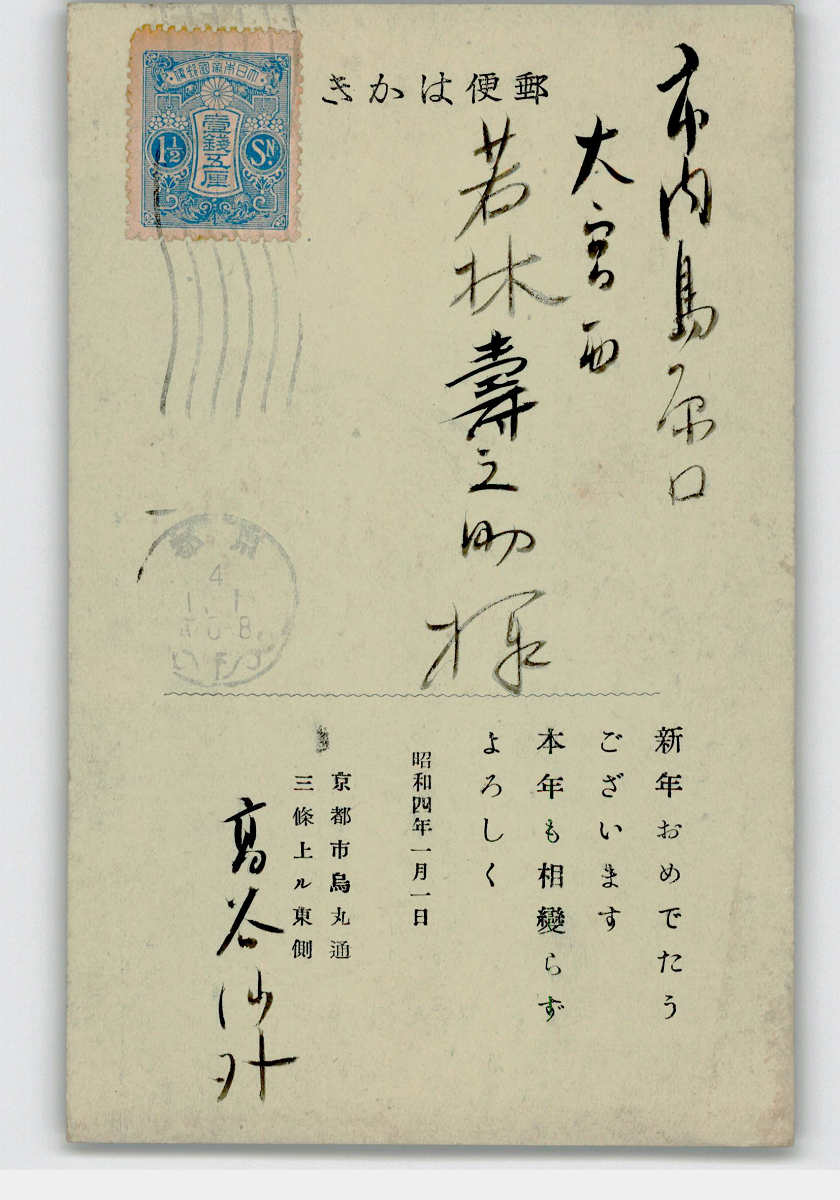 きかはㇵ便郵
大日本帝國郵便
壹錢五厘
1½ Sn.
市内島原口
大宮西
若林壽之助様
新年おめでたう
ございます
本年も相變らず
よろしく
昭和四年一月一日
京都市烏丸通
三條上ル東側
高谷仙外
京都
4
1.1